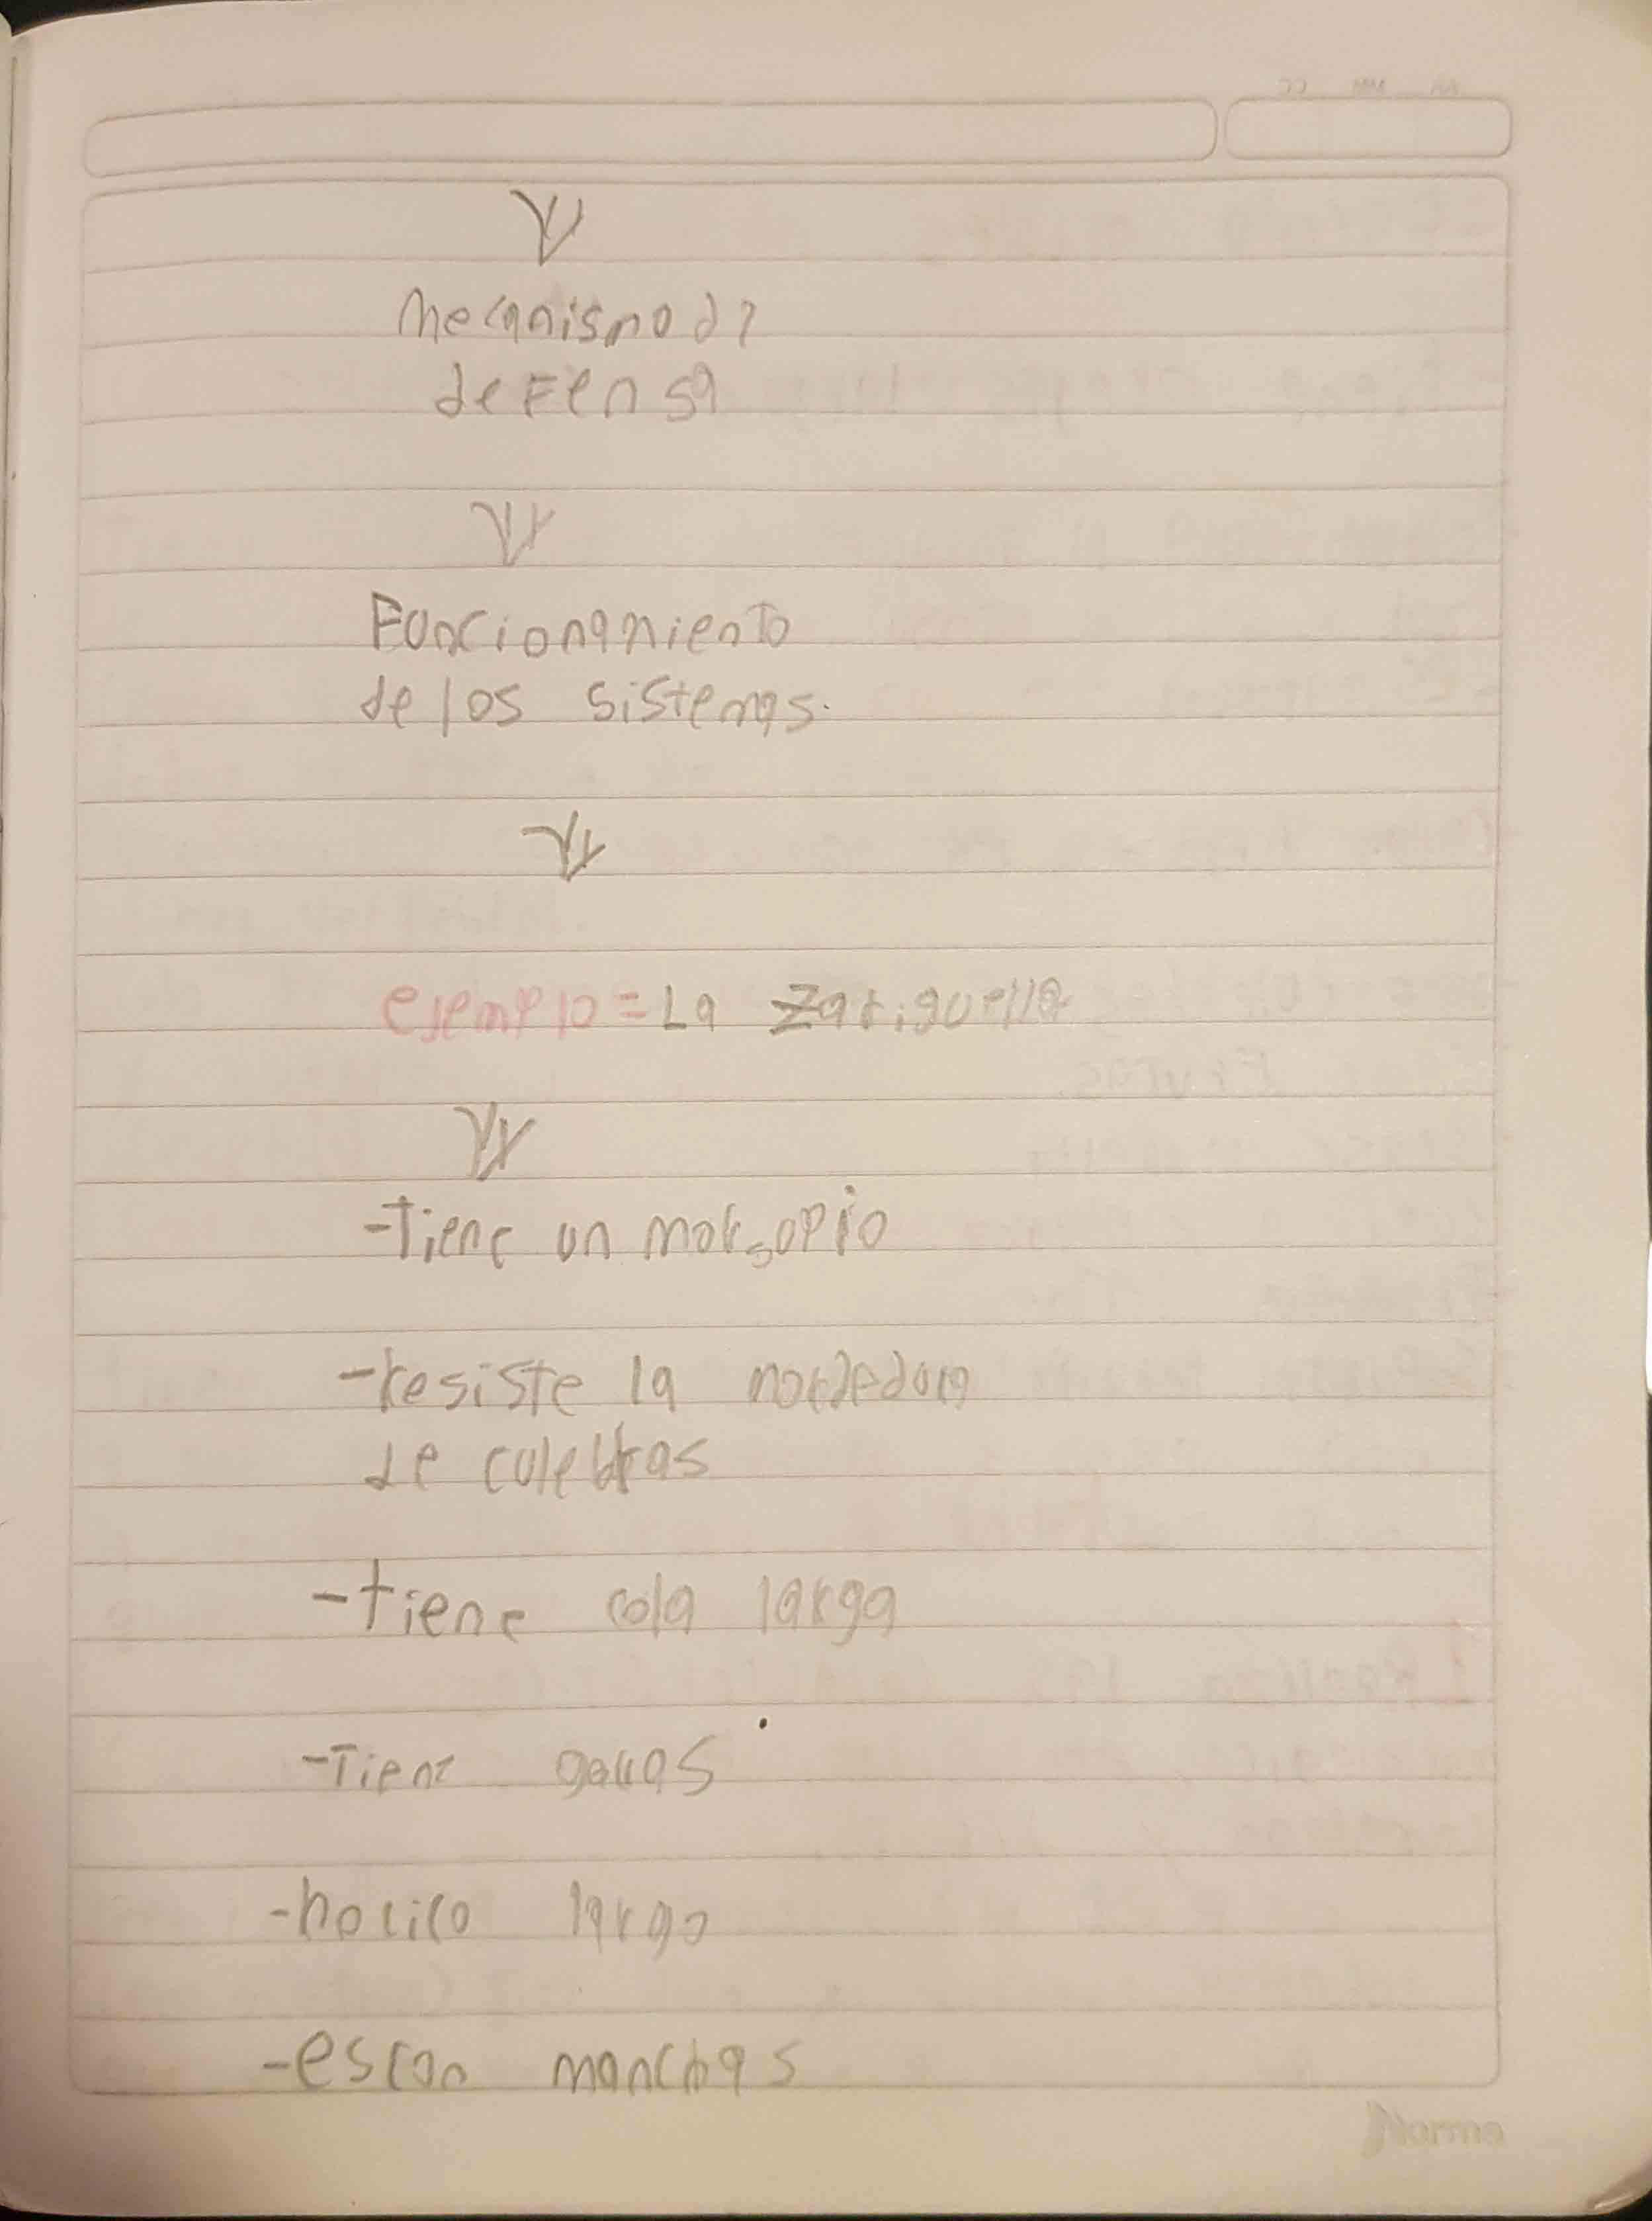 Mecanismo de
defensa
Funcionamiento
de los sistemas.
ejemplo = La Zariguella
-Tiene un marsopio
-resiste la mordedura
de culebras
-tiene cola larga
-Tiene garras
-hocico largo
-es con manchas
Norma